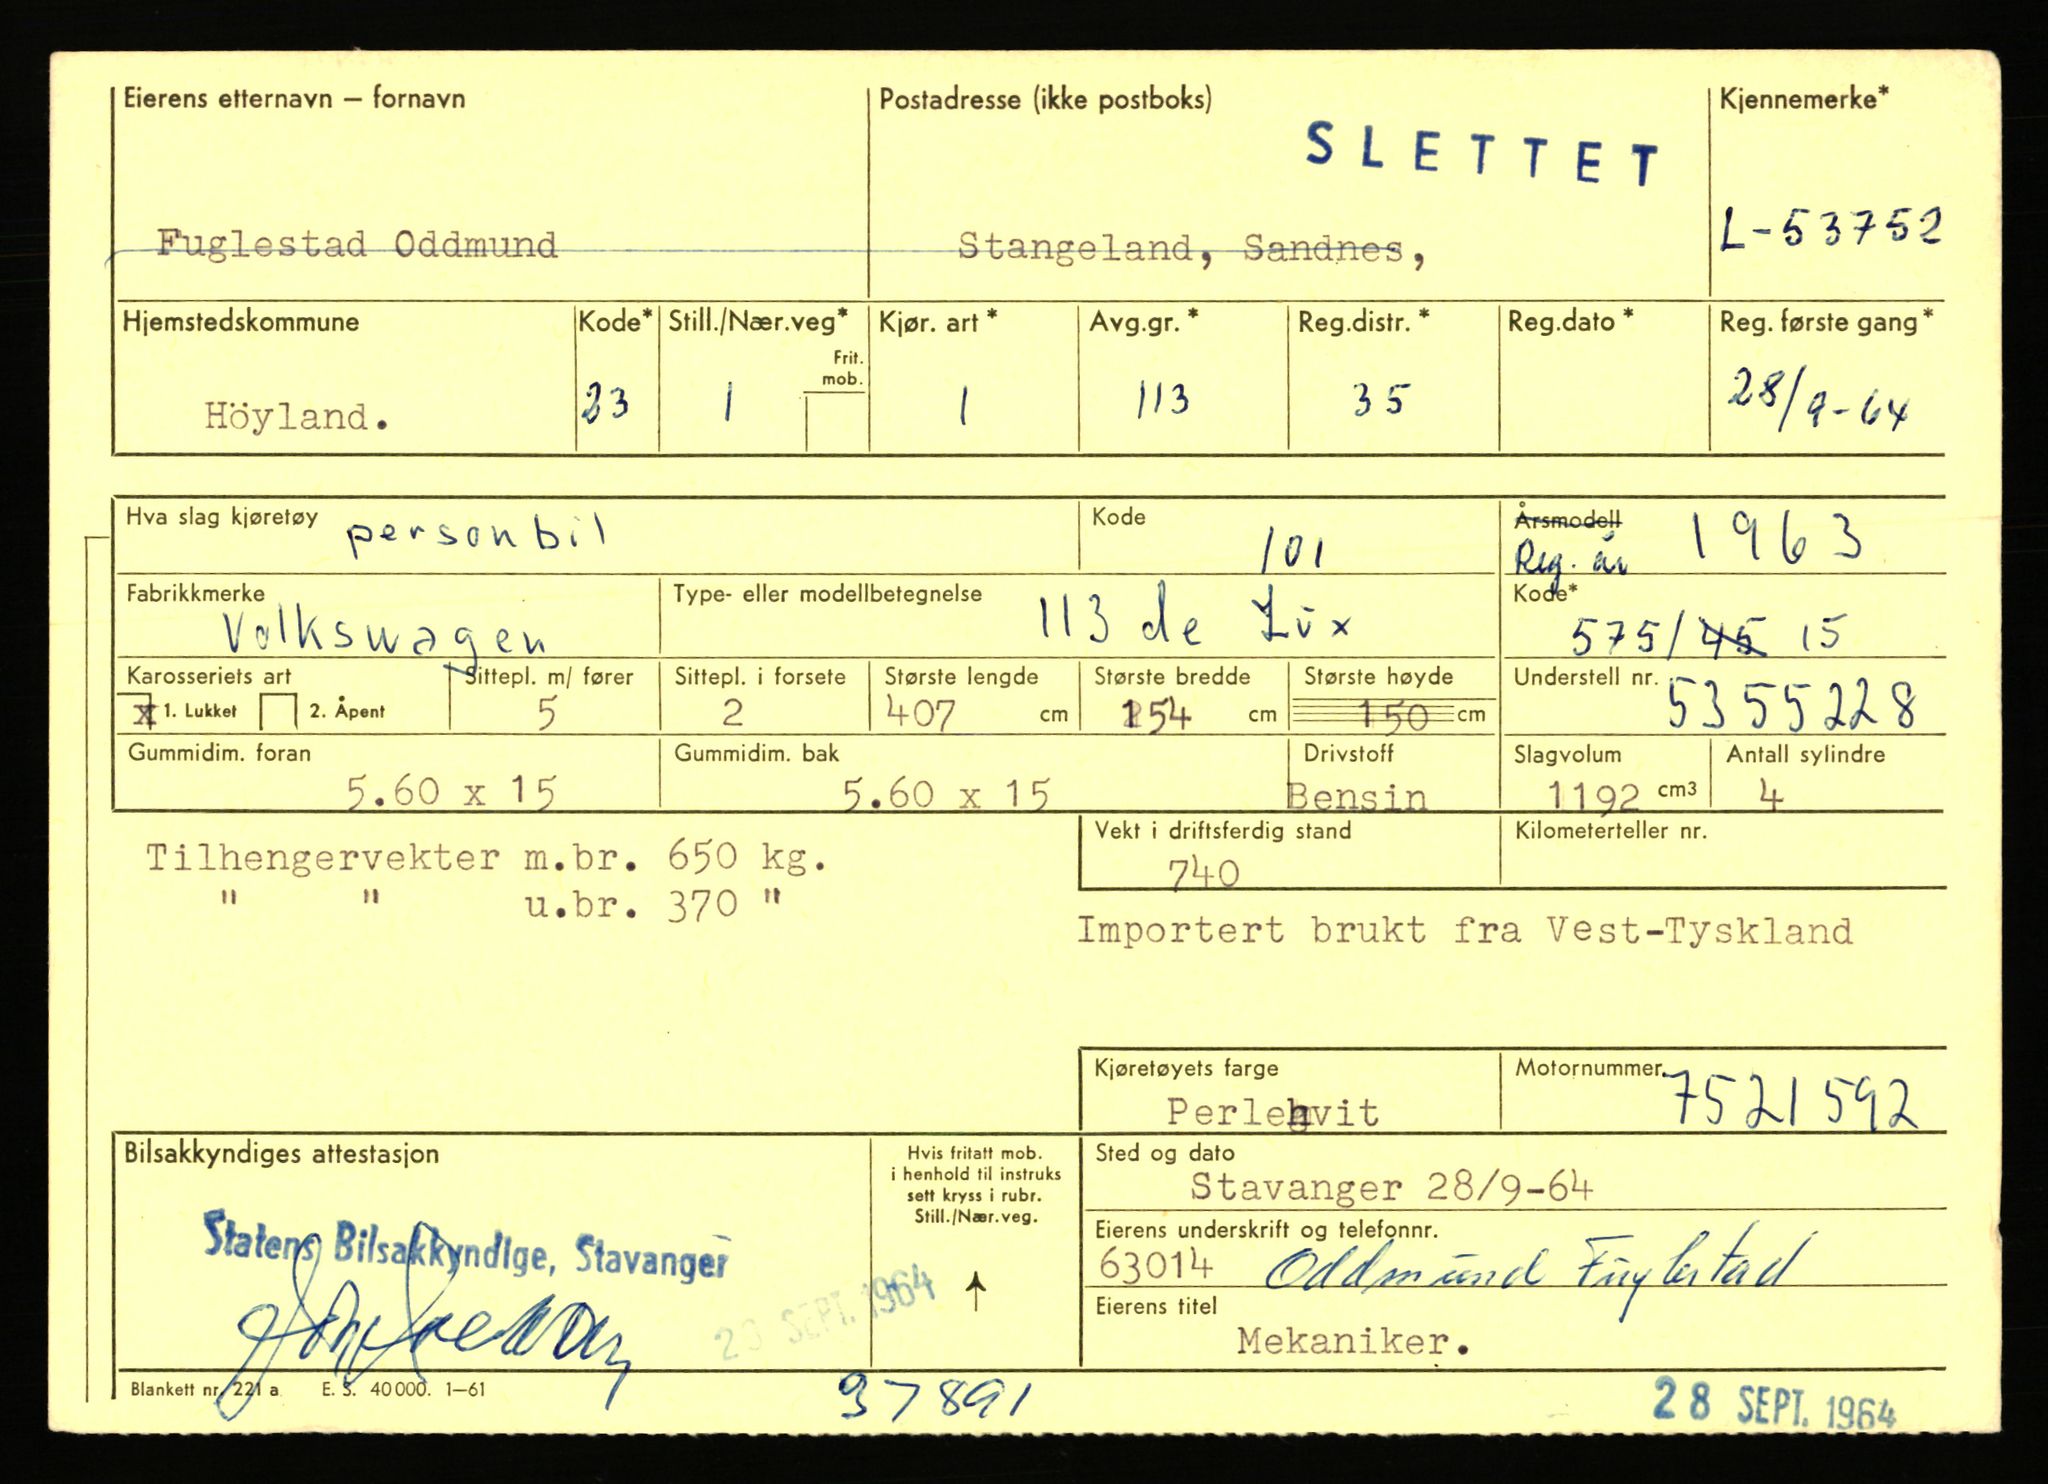 Eierens etternavn – fornavn Postadresse (ikke postboks) Kjennemerke*
SLETTET
Fuglestad Oddmund Stangeland, Sandnes, L-53752
Hjemstedskommune Kode* Still./Nær.veg* Kjør. art* Avg.gr.* Reg.distr.* Reg.dato* Reg. første gang*
Frit.
mob.
Höyland. 23 1 1 113 35 28/9-64
Hva slag kjøretøy personbil Kode 101 Årsmodell 1963
Reg. år
Fabrikkmerke Type- eller modellbetegnelse Kode*
Volkswagen 113 de Lux 575/45 15
Karosseriets art Sittepl. m/ fører Sittepl. i forsete Største lengde Største bredde Største høyde Understell nr. 5355228
x 1. Lukket 2. Åpent 5 2 407 cm 154 cm 150 cm
Gummidim. foran Gummidim. bak Drivstoff Slagvolum Antall sylindre
5.60 x 15 5.60 x 15 Bensin 1192 cm3 4
Vekt i driftsferdig stand Kilometerteller nr.
Tilhengervekter m.br. 650 kg. 740
" " u.br. 370 "
Importert brukt fra Vest-Tyskland
Kjøretøyets farge Motornummer. 7521592
Perlehvit
Bilsakkyndiges attestasjon Hvis fritatt mob. Sted og dato
i henhold til instruks
sett kryss i rubr.
Still./Nær.veg.
Stavanger 28/9-64
Statens Bilsakkyndige, Stavanger
Eierens underskrift og telefonnr.
63014 Oddmund Fuglestad
SEPT. 1964
Eierens titel
Mekaniker.
Blankett nr. 221 a E. S. 40000. 1–61
37891
28 SEPT. 1964